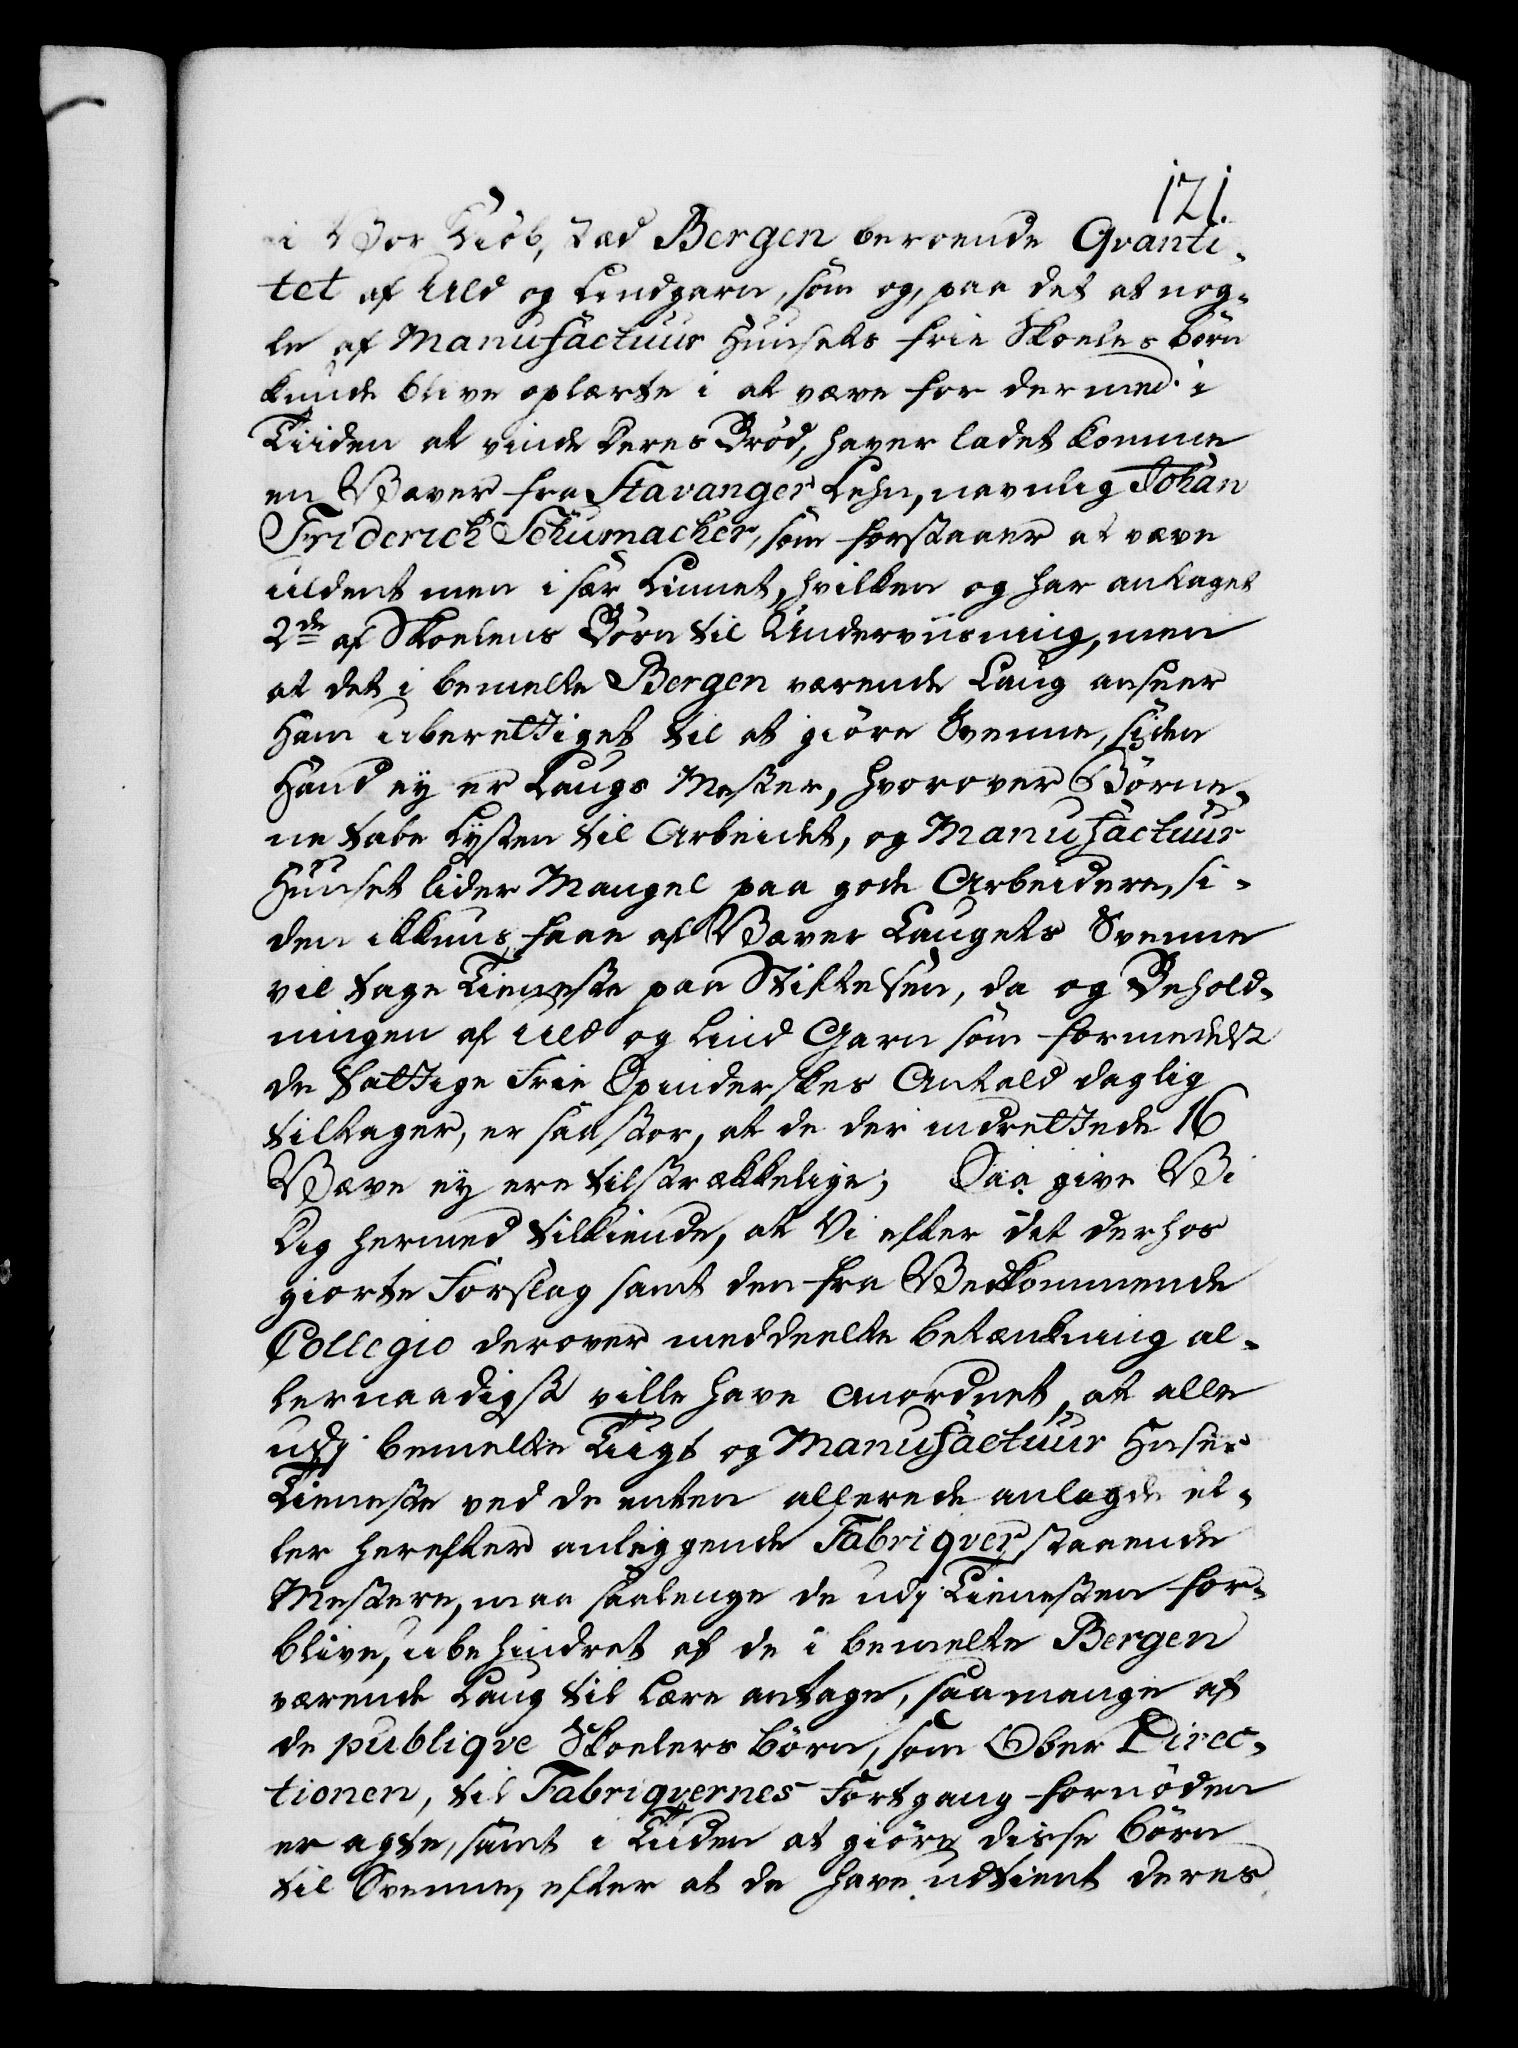 121.
i Vor Kiöbstæd Bergen beroende Qvanti-
tet af Uld og Lindgarn, som og, paa det at nog-
le af Manufactuur Huusets frie Skoeles börn
kunde blive oplærte i at væve for dermed i
Tiiden at vinde deres Bröd, haver ladet komme
en Væver fra Stavanger Lehn, navnlig Johan
Friderich Schumacher, som forstaaer at væve
uldent men i sær Linnet, hvilken og har antaget
2de af Skoelens Börn til Underviisning, men
at det i bemelte Bergen værende Laug anseer
Ham uberettiget til at giöre Svenne, siden
Hand ej er Laugs Mester, hvorover Börne-
ne tabe Lysten til Arbeidet, og Manufactuur
Huuset lider Mangel paa gode Arbeidere, si-
den ikkuns faae af Væver Laugets Svenne
vil tage Tieneste paa Stiftelsen, da og Behold-
ningen af Uld og Lind Garn som formedelst
de fattige Frie Spinderskes Antald daglig
tiltager, er saa stor, at de der indrettede 16
Væve ej ere tilstrækkelige; Saa give Vi
Dig hermed tilkiende, at Vi efter det derhos
giorte Forslag samt den fra Vedkommende
Collegio derover meddeelte betænkning al-
lernaadigst ville have anordnet, at alle
udj bemelte Tugt og Manufactuur Huses
Tieneste ved de enten allerede anlagde el-
ler herefter anleggende Fabriqver staaende
Mestere, maa saalenge de udj Tienesten for-
blive, ubehindret af de i bemelte Bergen
værende Laug til Lære antage, saa mange af
de publiqve Skoelers börn, som Ober Direc-
tionen, til Fabriqvernes Fortgang fornöden
er agte, samt i Tiiden at giöre disse börn
til Svenne, efter at de have udtient deres